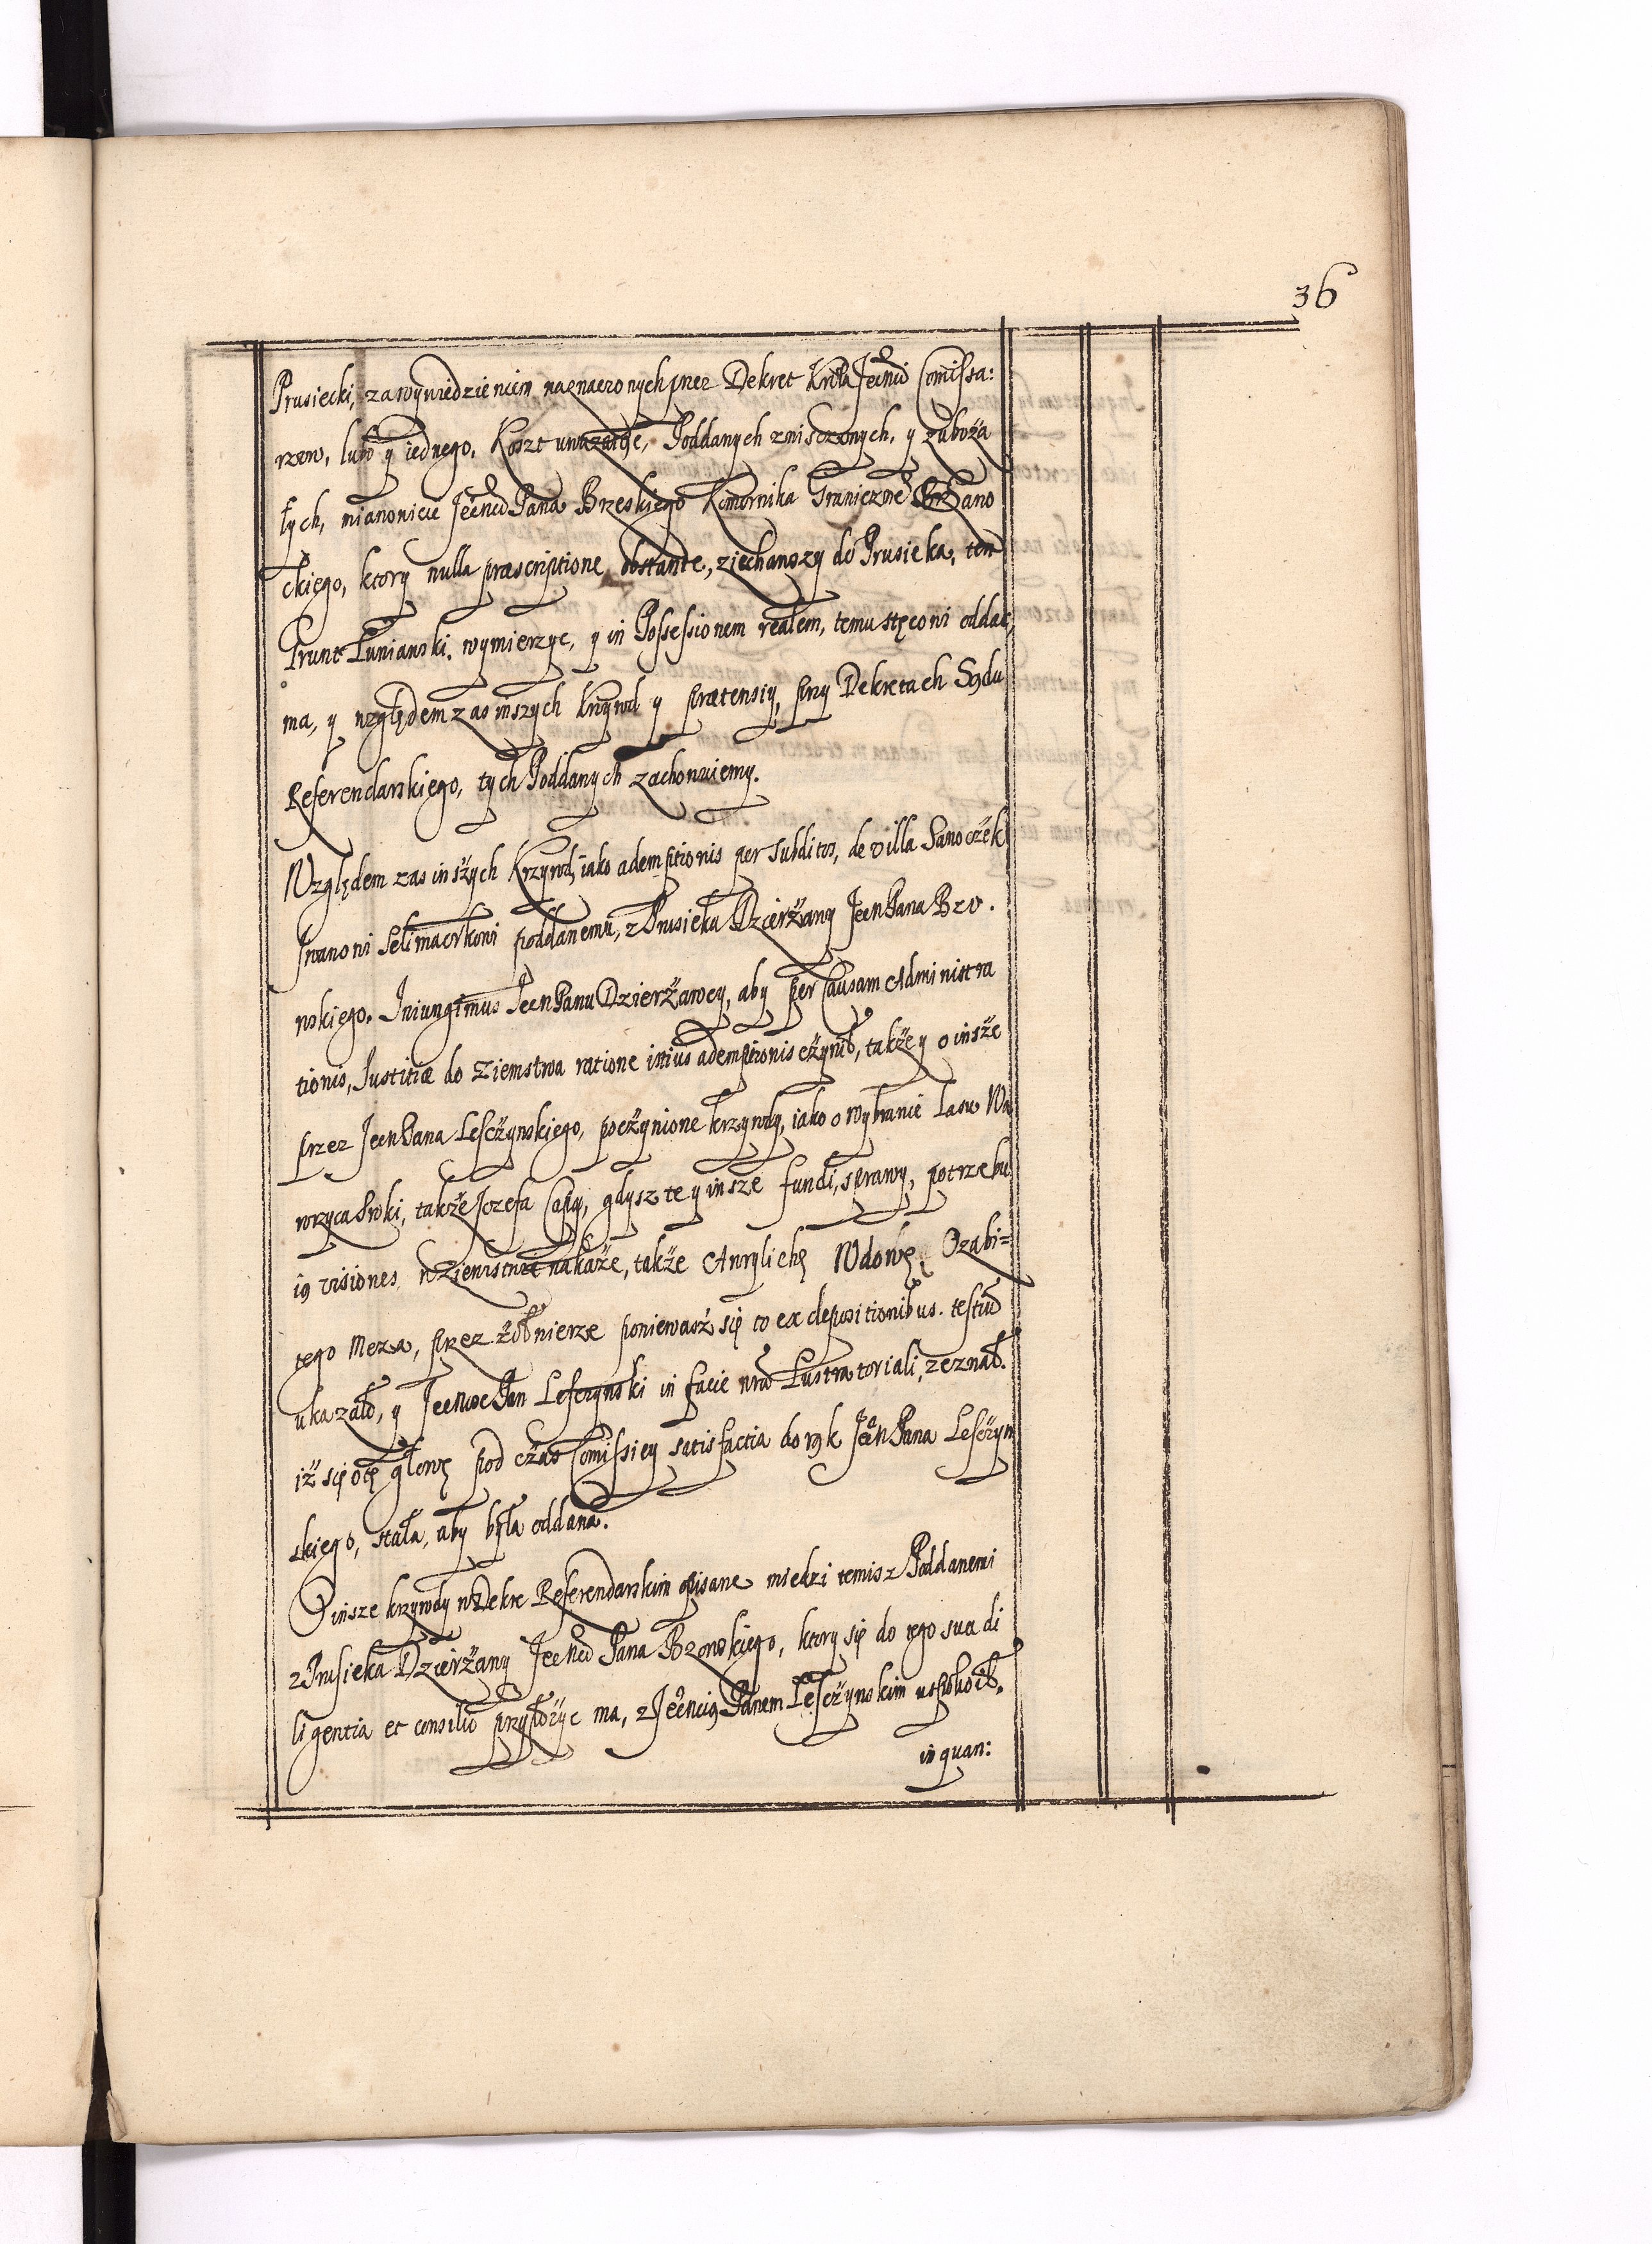 36
Prusiecki, za wywiedzieniem naznaczonych przez Dekret Krola Jeᵒmci Comissa:
rzow, lubo y iednego, Koszt uwazaiąc, Poddanych znisczonych, y zuboża
łych, mianowicie Jeᵒmci Pana Brzeskiego Komornika Graniczneᵒ Sano
ckiego, ktory nulla præscriptione obstante, ziechawszy do Prusieka, ten
Grunt Łuniawski, wymierzyc, y in Possessionem realem, temu Stęcowi oddac,
ma, y względem zas inszych Krzywd y prætensiy, przy Dekretach Sądu
Referendarskiego, tych Poddanych zachowuiemy.
Względem zas inszych Krzywd, iako ademptionis per subditos, de villa Sanoczek
Iwanowi poddanemu, z Prusieka Dzierżawy Jeᵒm Pana Bzo.
wskiego. Iniungimus Jeᵒm Panu Dzierżawcy, aby per Causam Administra
tionis, Iustitiæ do Ziemstwa ratione istius ademptionis czynił, także y o insze
przez Jeᵒm Pana Lesczynskiego, poczynione krzywdy, iako o wybranie Lasu Wa
wrzyca Sroki, także Jozefa Capy, gdysz te y insze fundi, sprawy, potrzebu
ią visiones, w Ziemstwie nakaże, także Awrylichę Wdowę, O zabi=
tego Meza, przez żołnierze poniewasz się to ex depositionibus testiū
ukazało, y Jeᵒmsc Pan Lesczynski in facie nrā Lustratoriali, zeznał.
iż się o tę głowę pod czas Comissiey satisfactia do rąk Jeᵒm Pana Lesczyn
skiego, stała, aby była oddana.
O insze krzywdy w Dekre Referendarskim opisane miedzi temisz Poddanemi
z Prusieka Dzierżawy Jeᵒmci Pana Bzowskiego, ktory się do tego sua di
ligentia et consilio przyłożyc ma, z Jeᵒmcią Panem Lesczynskim uspokoił,
in quan: